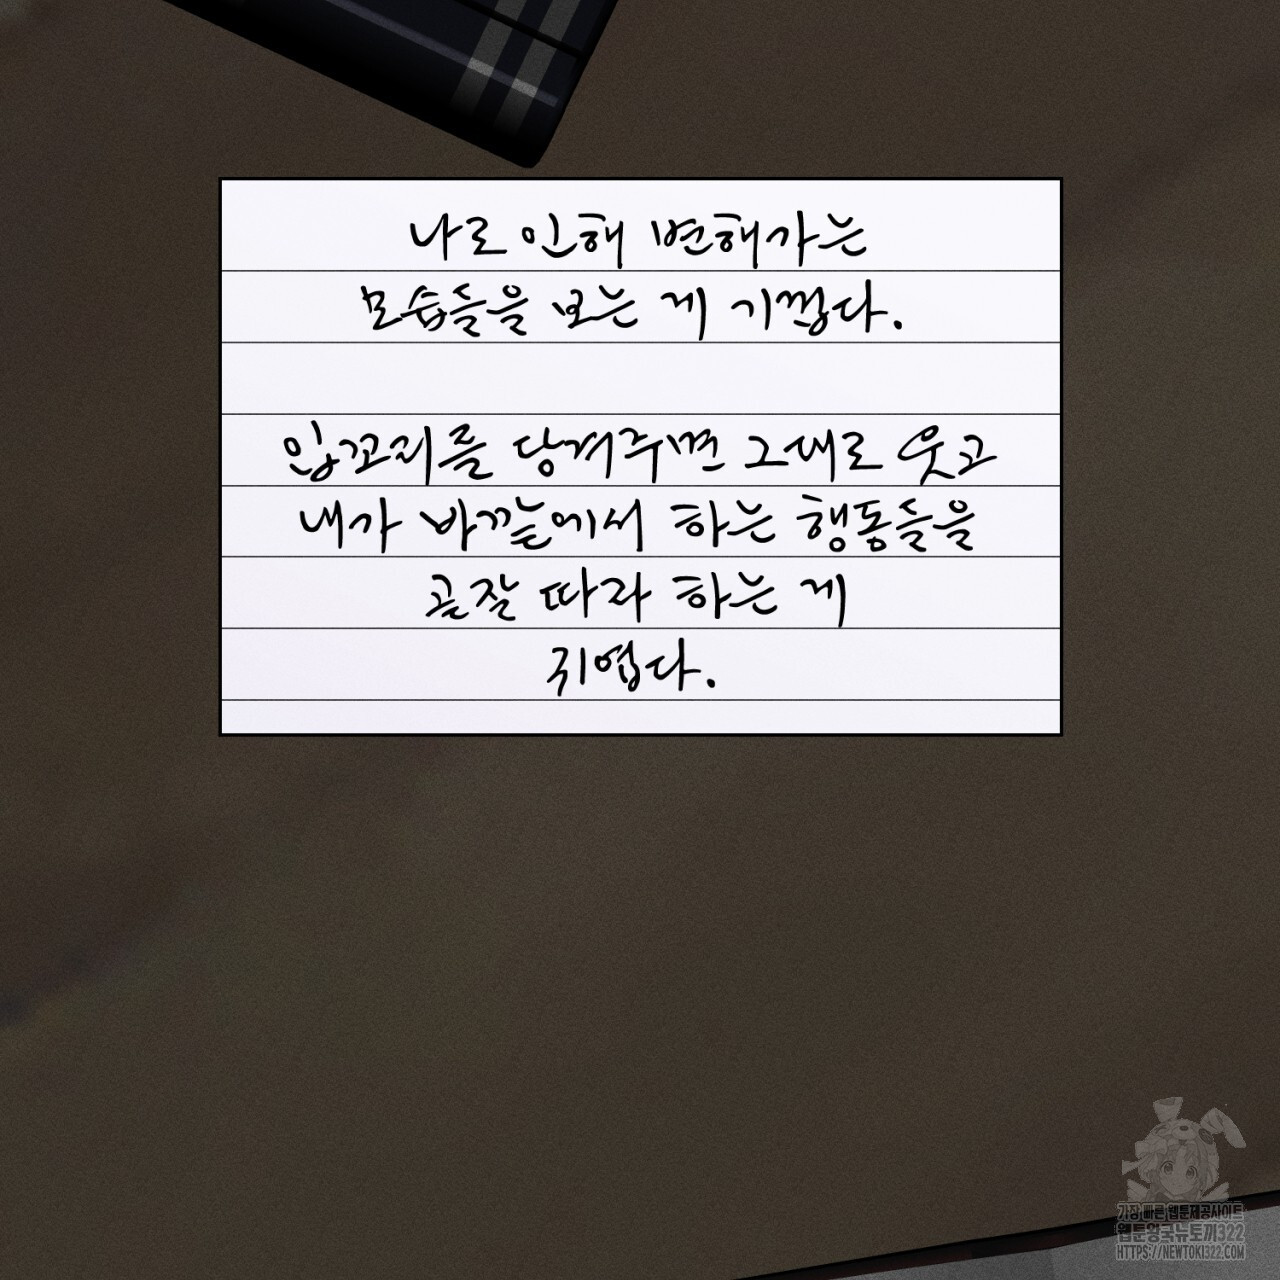 나로 인해 변해가는
모습들을 보는 게 기껍다.
입꼬리를 당겨주면 그대로 웃고
내가 바깥에서 하는 행동들을
곧잘 따라 하는 게
귀엽다.
가장 빠른 웹툰제공사이트
웹툰왕국뉴토끼322
HTTPS://NEWTOKI322.COM